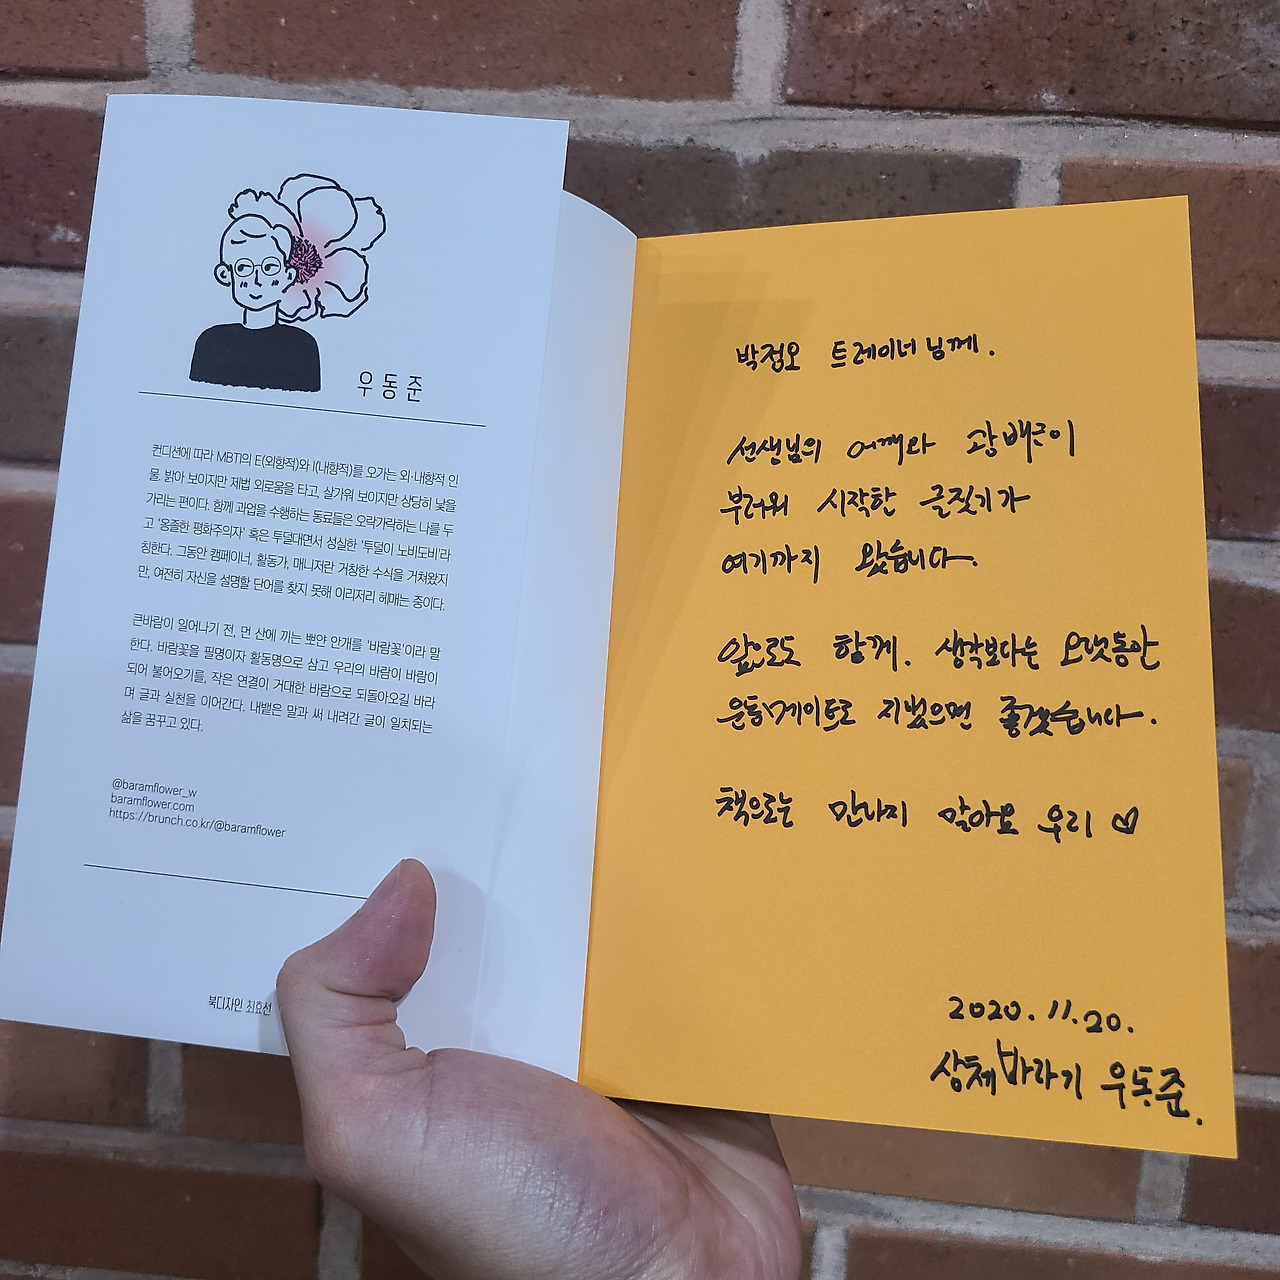 우동준
컨디션에 따라 MBTI의 E(외향적)와 I(내향적)를 오가는 외·내향적 인
물. 밝아 보이지만 제법 외로움을 타고, 살가워 보이지만 상당히 낯을
가리는 편이다. 함께 과업을 수행하는 동료들은 오락가락하는 나를 두
고 '옹졸한 평화주의자' 혹은 투덜대면서 성실한 '투덜이 노비도비'라
칭한다. 그동안 캠페이너, 활동가, 매니저란 거창한 수식을 거쳐왔지
만, 여전히 자신을 설명할 단어를 찾지 못해 이리저리 헤매는 중이다.
큰바람이 일어나기 전, 먼 산에 끼는 뽀얀 안개를 '바람꽃'이라 말
한다. 바람꽃을 필명이자 활동명으로 삼고 우리의 바람이 바람이
되어 불어오기를, 작은 연결이 거대한 바람으로 되돌아오길 바라
며 글과 실천을 이어간다. 내뱉은 말과 써 내려간 글이 일치되는
삶을 꿈꾸고 있다.
@baramflower_w
baramflower.com
https://brunch.co.kr/@baramflower
북디자인 최효선
박정오 트레이너님께.
선생님의 어깨와 광배근이
부러워 시작한 글짓기가
여기까지 왔습니다.
앞으로도 함께. 생각보다는 오랫동안
운동메이트로 지냈으면 좋겠습니다.
책으로는 만나지 말아요 우리 ♡
2020. 11. 20.
상체바라기 우동준.